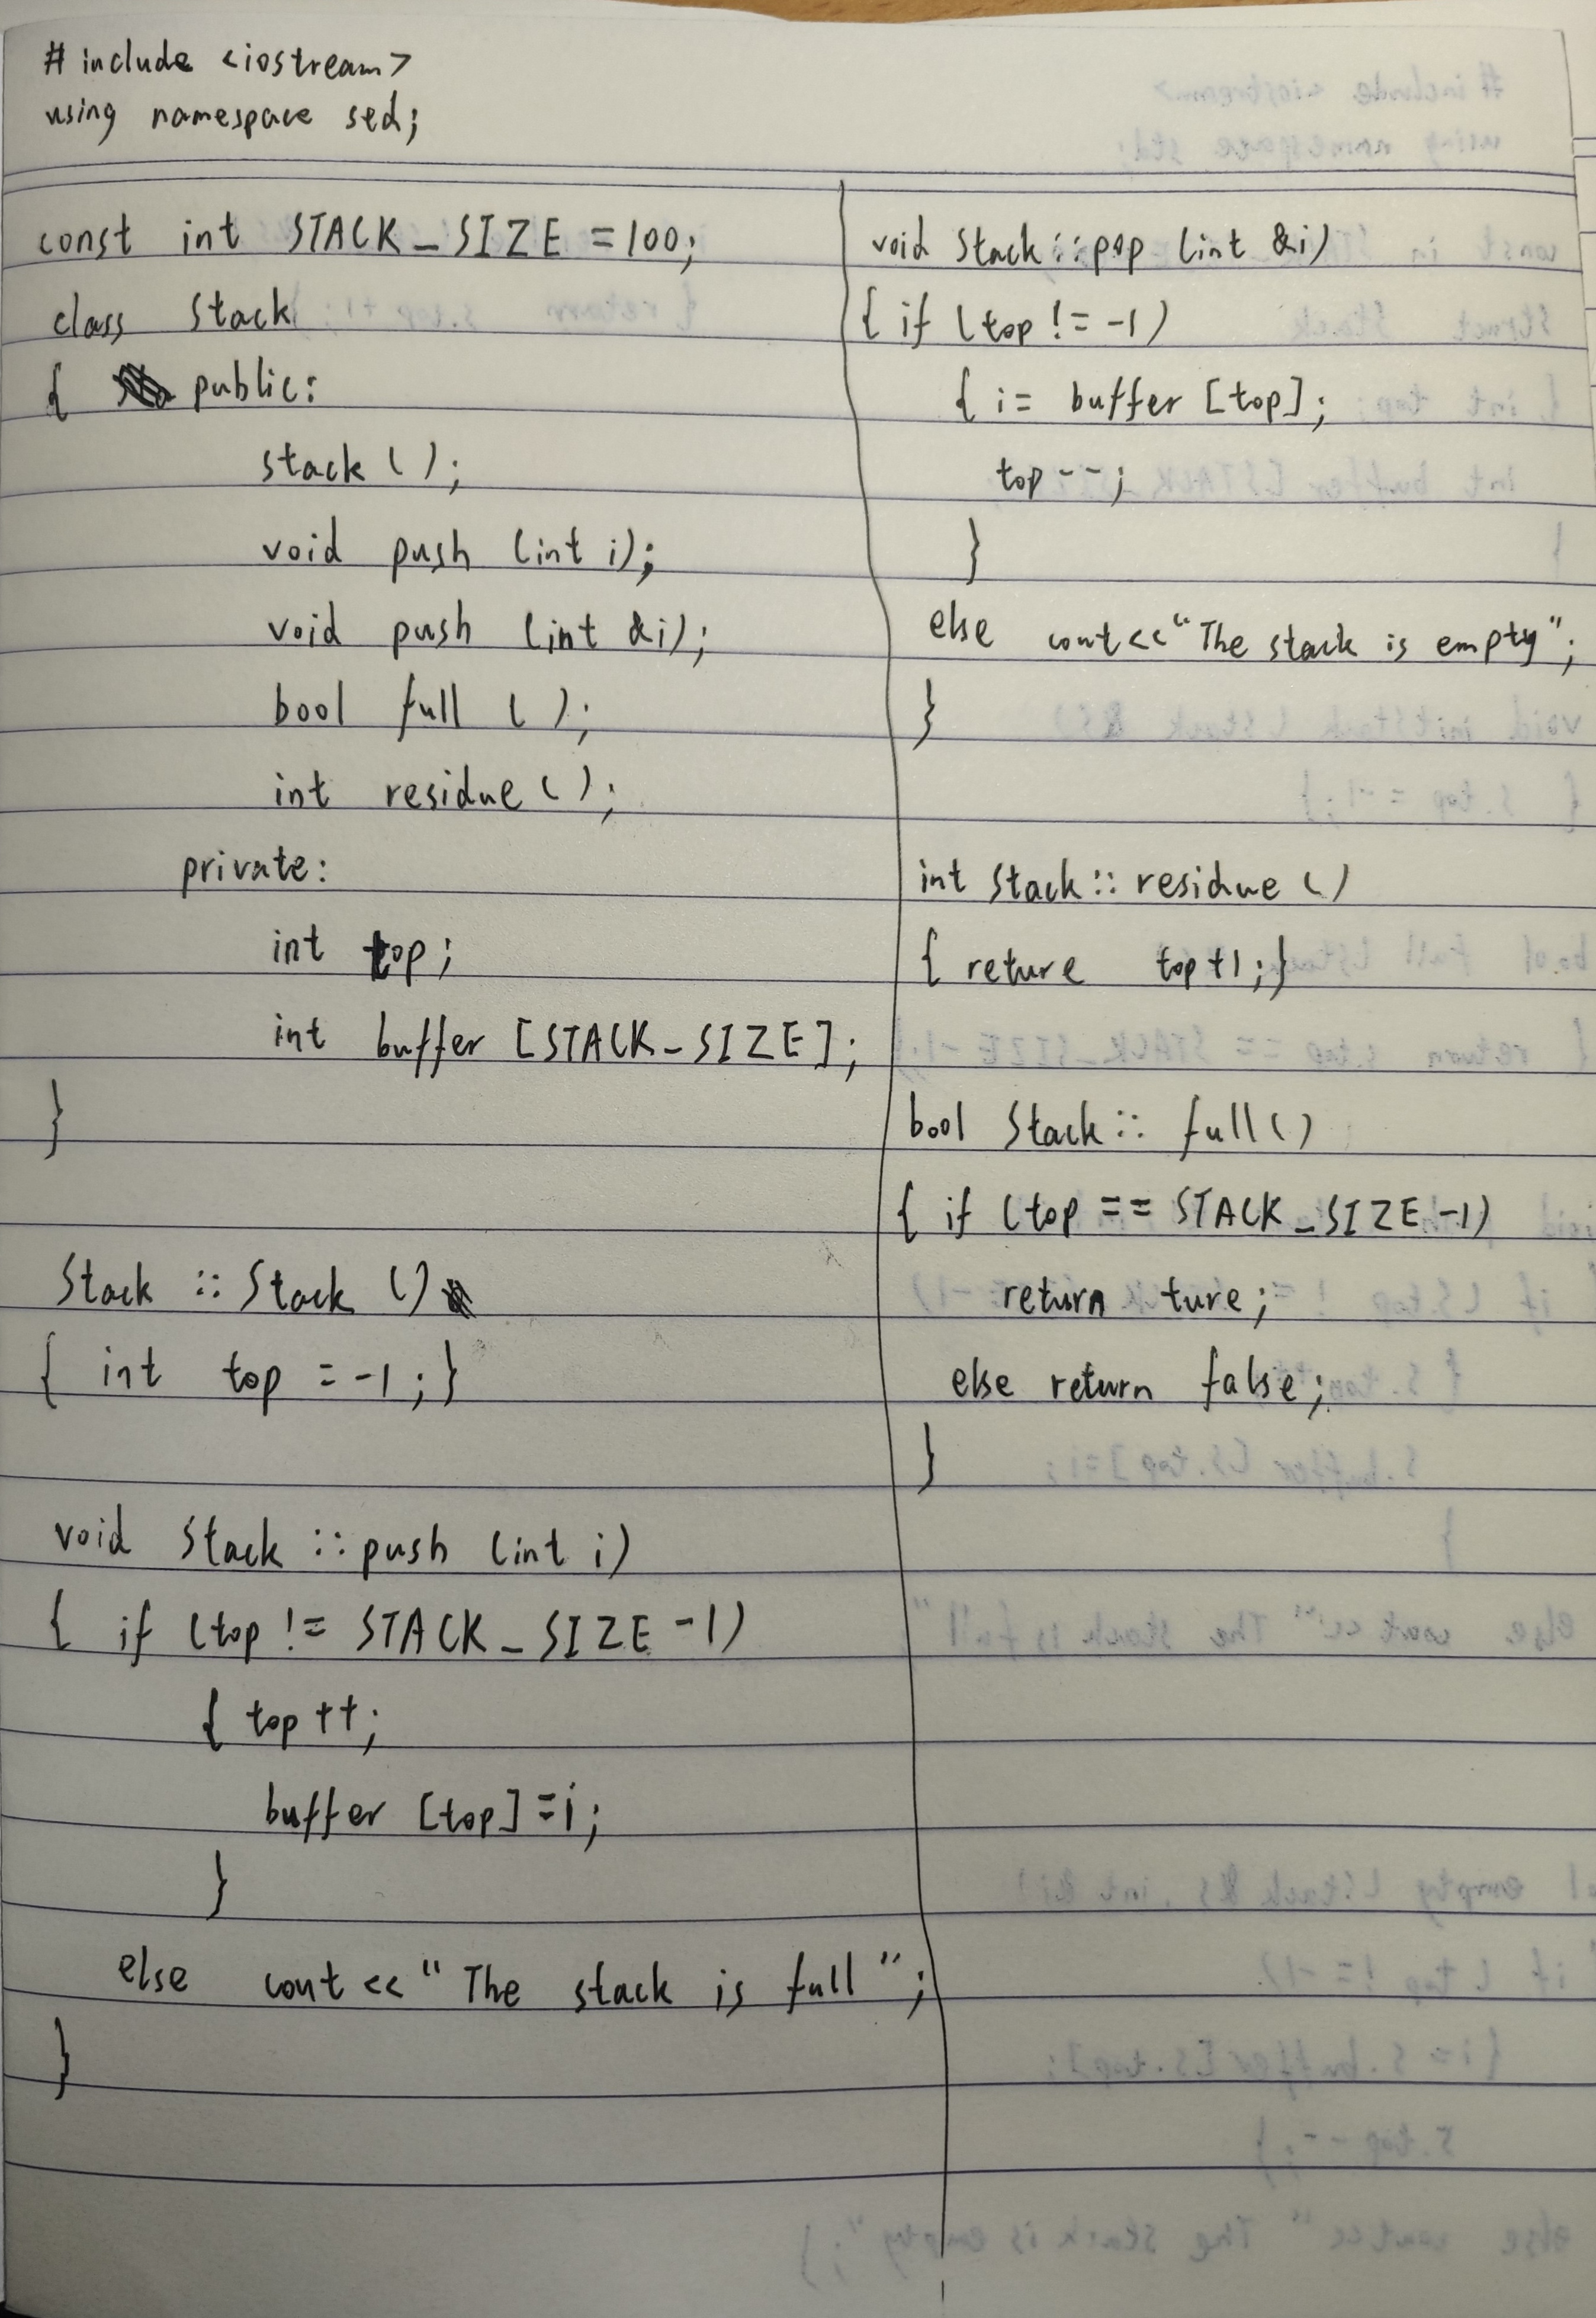 # include <iostream>
using namespace std;
const int STACK_SIZE = 100;
class Stack
{ public:
stack ( );
void push (int i);
void push (int &i);
bool full ( );
int residue ( );
private:
int top;
int buffer [STACK_SIZE];
}
Stack :: Stack ( )
{ int top = -1; }
void Stack :: push (int i)
{ if (top != STACK_SIZE -1)
{ top ++;
buffer [top] = i;
}
else cout << " The stack is full ";
}
void Stack :: pop (int &i)
{ if (top != -1)
{ i = buffer [top];
top --;
}
else cout << "The stack is empty";
}
int Stack :: residue ( )
{ reture top +1; }
bool Stack :: full ( )
{ if (top == STACK_SIZE -1)
return ture;
else return false;
}